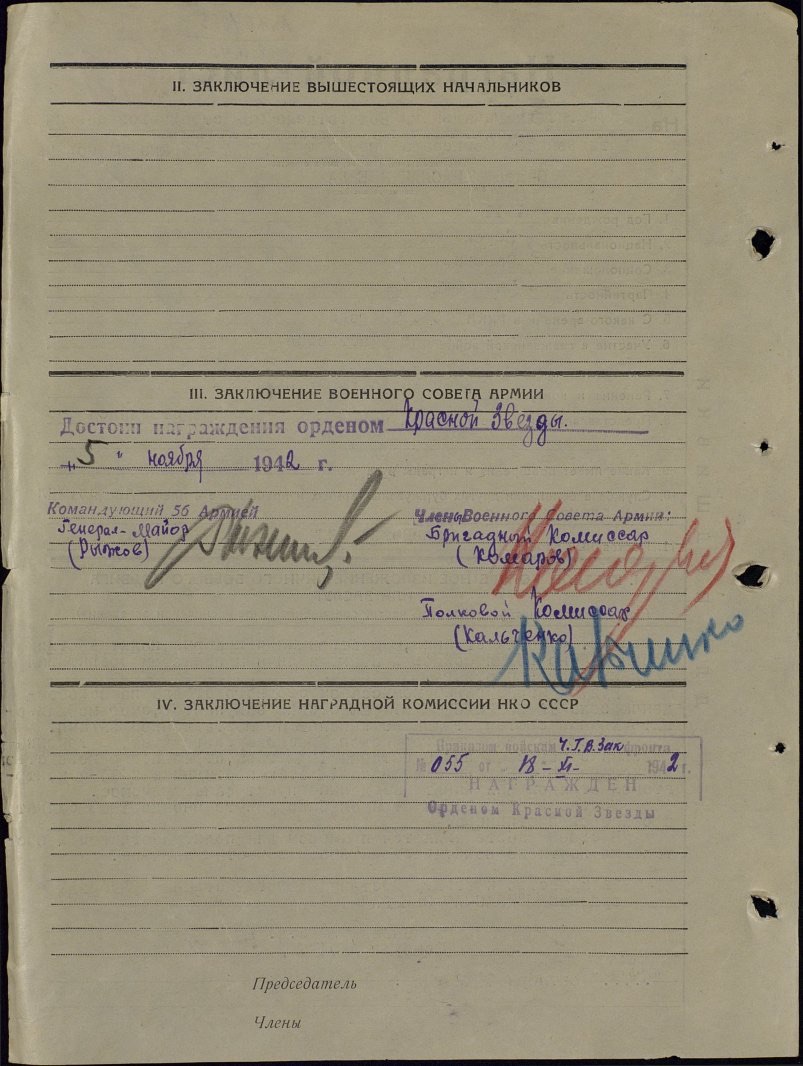 II. ЗАКЛЮЧЕНИЕ ВЫШЕСТОЯЩИХ НАЧАЛЬНИКОВ
III. ЗАКЛЮЧЕНИЕ ВОЕННОГО СОВЕТА АРМИИ
Достоин награждения орденом Красной Звезды.
"5" ноября 1942 г.
Командующий 56 Армией
Генерал-Майор
(Рыжов)
Члены Военного Совета Армии:
Бригадный Комиссар
(Комаров)
Полковой Комиссар
(Кальченко)
IV. ЗАКЛЮЧЕНИЕ НАГРАДНОЙ КОМИССИИ НКО СССР
Приказом войскам Ч.Г.В.Зак фронта
№ 055 от 18-XI- 1942 г.
НАГРАЖДЕН
Орденом Красной Звезды
Председатель
Члены